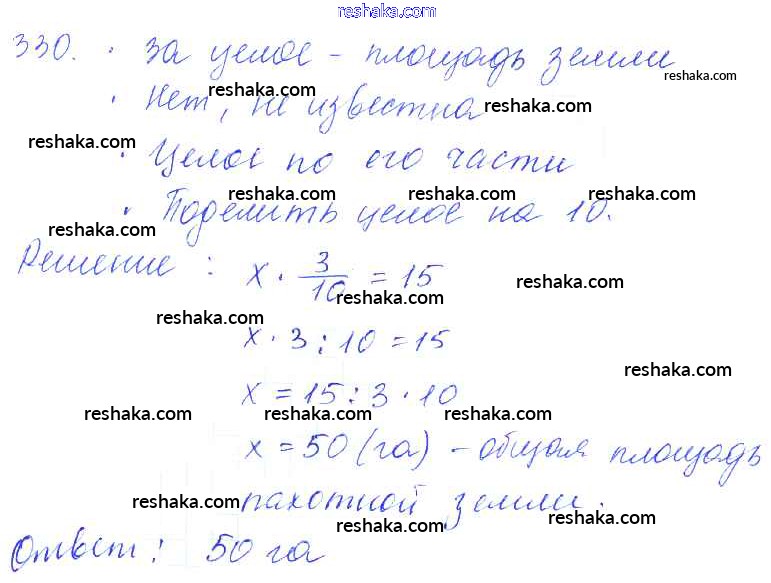 reshaka.com
330. · За целое - площадь земли
reshaka.com
· Нет, не известна
reshaka.com
reshaka.com
· Целое по его части
reshaka.com reshaka.com reshaka.com
· Поделить целое на 10.
reshaka.com
Решение : x · 3/10 = 15
reshaka.com
reshaka.com
reshaka.com
x · 3 : 10 = 15
reshaka.com
x = 15 : 3 · 10
reshaka.com reshaka.com reshaka.com
x = 50 (га) - общая площадь
reshaka.com reshaka.com reshaka.com
пахотной земли.
reshaka.com reshaka.com
Ответ: 50 га